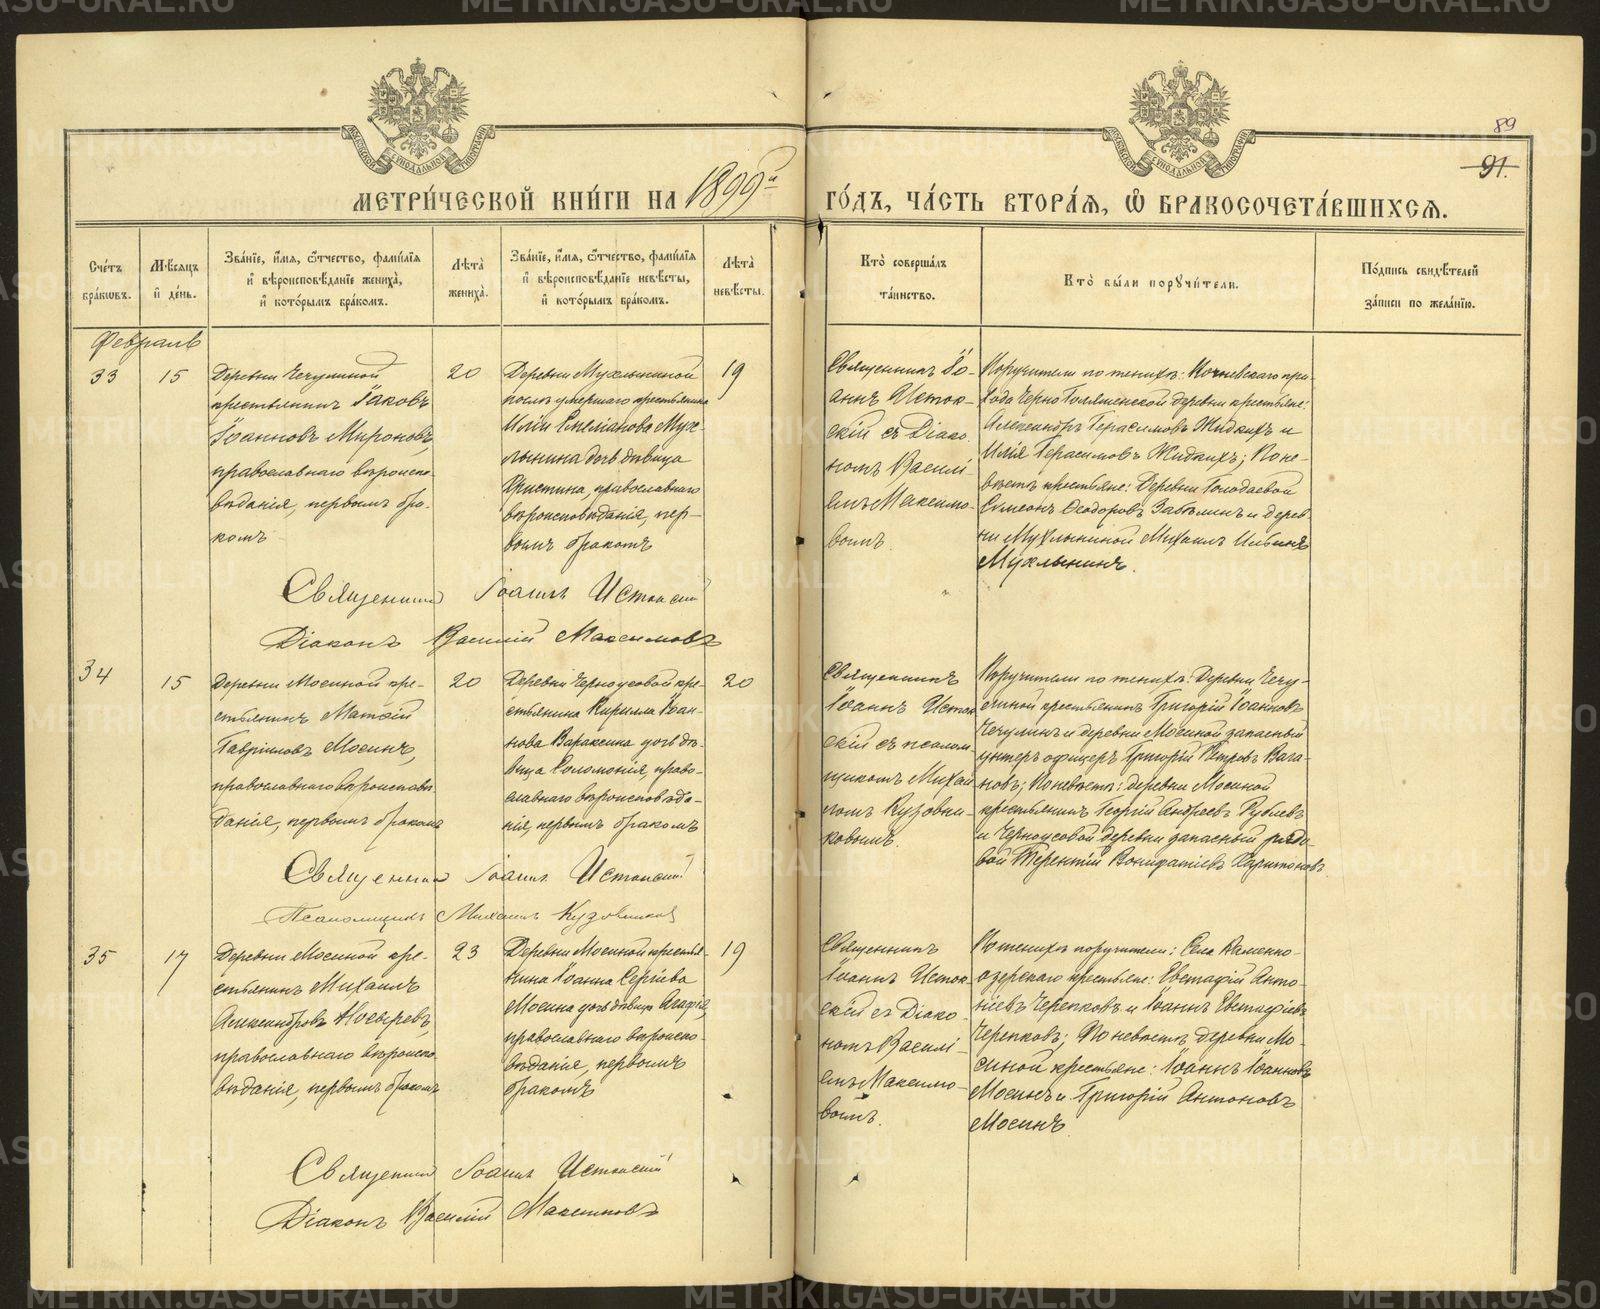 МЕТРИ́ЧЕСКОЙ КНИ́ГИ НА 1899й ГО́ДЪ, ЧА́СТЬ ВТОРА́Я, Ѽ БРАКОСОЧЕТА́ВШИХСЯ.
89
91.
Сче́тъ бра́ковъ.
Мѣ́сяцъ и҆ де́нь.
Зва́нїе, и҆́мя, ѻ҆́тчество, фами́лїя и҆ вѣроисповѣ́данїе жениха̀, и҆ кото́рымъ бра́комъ.
Лѣта̀ жениха̀.
Зва́нїе, и҆́мя, ѻ҆́тчество, фами́лїя и҆ вѣроисповѣ́данїе невѣ́сты, и҆ кото́рымъ бра́комъ.
Лѣта̀ невѣ́сты.
Кто̀ соверша́лъ та́инство.
Кто̀ бы́ли порꙋчи́тели.
По́дпись свидѣ́телей за́писи по жела́нїю.
Февраль
33
15
Деревни Чечулиной
крестьянинъ Іаковъ
Іоанновъ Мироновъ,
православнаго вѣроиспо-
вѣданія, первымъ бра-
комъ
20
Деревни Мухлыниной
послѣ умершаго крестьянина
Иліи Емеліанова Мух-
лынина дочь дѣвица
Христина, православнаго
вѣроисповѣданія, пер-
вымъ бракомъ
19
Священникъ Іо-
аннъ Исток-
скій съ Діако-
номъ Василі-
емъ Максимо-
вымъ.
Поручители по женихѣ: при-
хода деревни крестьяне:
Александръ Герасимовъ Жидкихъ и
Илія Герасимовъ Жидкихъ; По не-
вѣстѣ крестьяне: Деревни Голодаевой
Симеонъ Ѳеодоровъ Забѣлинъ и дерев-
ни Мухлыниной Михаилъ Ильинъ
Мухлынинъ.
Священникъ Іоаннъ Истокскій
Діаконъ Василій Максимовъ
34
15
Деревни Мосиной кре-
стьянинъ Матѳій
Гавріиловъ Мосинъ,
православнаго вѣроисповѣ-
данія, первымъ бракомъ
20
Деревни Черноусовой кре-
стьянина Кирилла Іоан-
нова Вараксина дочь дѣ-
вица Соломонія, право-
славнаго вѣроисповѣда-
нія, первымъ бракомъ
20
Священникъ
Іоаннъ Исток-
скій съ псалом-
щикомъ Михаи-
ломъ Кузовни-
ковымъ.
Поручители по женихѣ: Деревни Чечу-
линой крестьянинъ Григорій Іоанновъ
Чечулинъ и деревни Мосиной запасный
унтеръ офицеръ Григорій Петровъ Вага-
новъ; По невѣстѣ: деревни Мосиной
крестьянинъ Георгій Андреевъ Рублевъ
и Черноусовой деревни запасный рядо-
вой Терентій Вонифатіевъ Харитоновъ
Священникъ Іоаннъ Истокскій
Псаломщикъ Михаилъ Кузовниковъ
35
17
Деревни Мосиной кре-
стьянинъ Михаилъ
Александровъ Косыревъ,
православнаго вѣроиспо-
вѣданія, первымъ бракомъ
23
Деревни Мосиной крестья-
нина Іоанна Сергіева
Мосина дочь дѣвица Агафія,
православнаго вѣроиспо-
вѣданія, первымъ
бракомъ
19
Священникъ
Іоаннъ Исток-
скій съ Діако-
номъ Василі-
емъ Максимо-
вымъ.
По женихѣ поручители: Села Каменно-
озерскаго крестьяне: Евстафій Анто-
ніевъ Черепковъ и Іоаннъ Евстафіевъ
Черепковъ; По невѣстѣ деревни Мо-
синой крестьяне: Іоаннъ Іоанновъ
Мосинъ и Григорій Антоновъ
Мосинъ.
Священникъ Іоаннъ Истокскій
Діаконъ Василій Максимовъ
METRIKI.GASO-URAL.RU